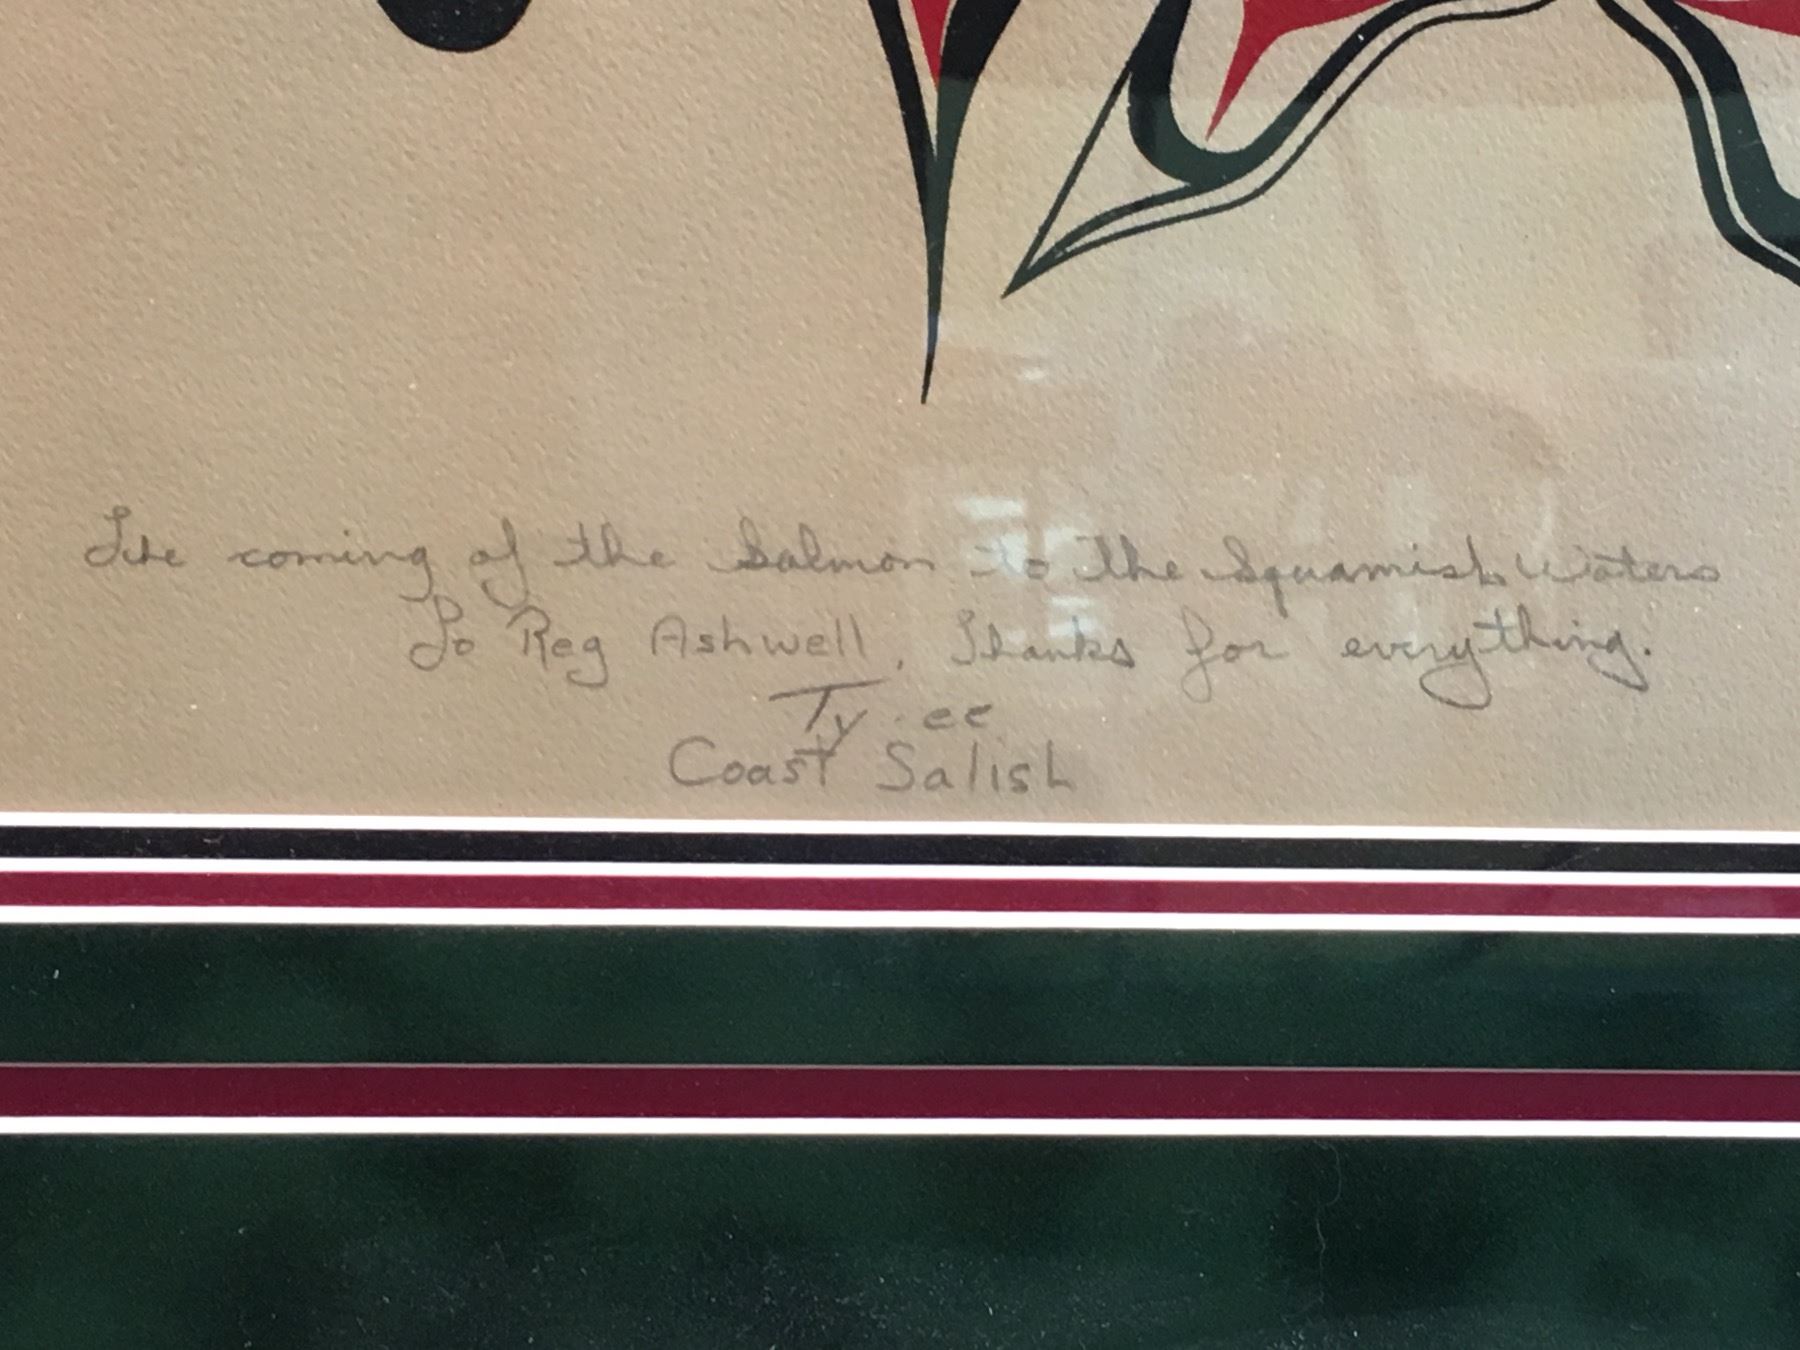 The coming of the Salmon to The Squamish Waters
To Reg Ashwell, Thanks for everything.
Ty-ee
Coast Salish